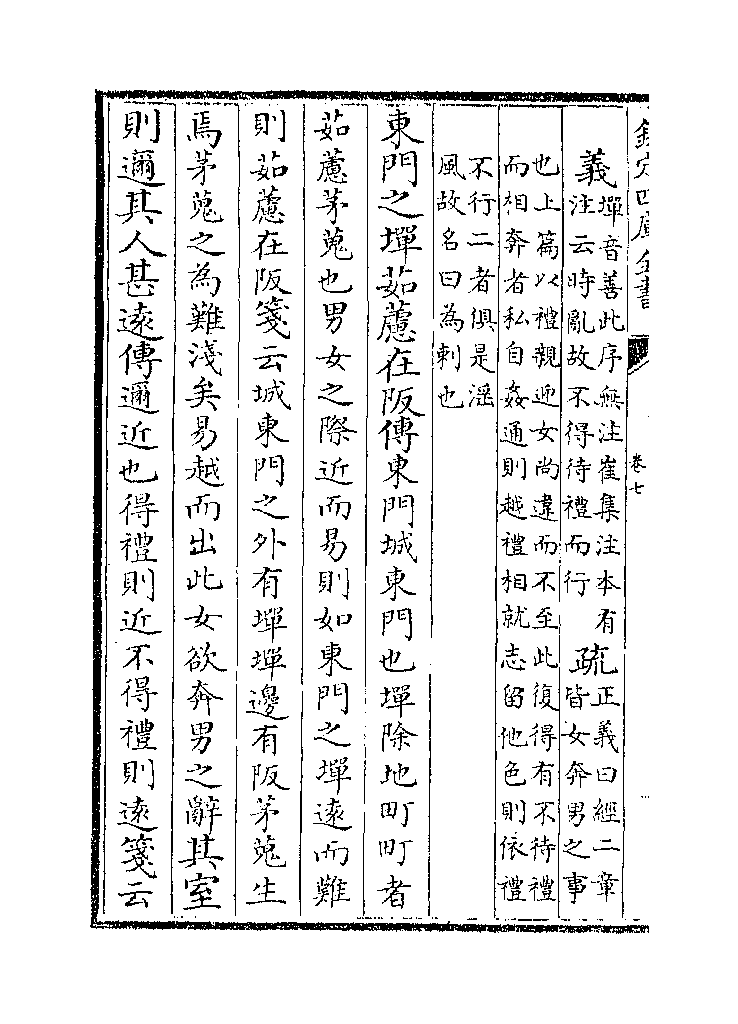 欽定四庫全書
卷七
義墠音善此序無注崔集注本有
注云時亂故不得待禮而行
疏正義曰經二章
皆女奔男之事
也上篇以禮親迎女尚違而不至此復得有不待禮
而相奔者私自姦通則越禮相就志留他色則依禮
不行二者俱是滛
風故名曰為刺也
東門之墠茹藘在阪傳東門城東門也墠除地町町者
茹藘茅蒐也男女之際近而易則如東門之墠遠而難
則茹藘在阪箋云城東門之外有墠墠邊有阪茅蒐生
焉茅蒐之為難淺矣易越而出此女欲奔男之辭其室
則邇其人甚遠傳邇近也得禮則近不得禮則遠箋云